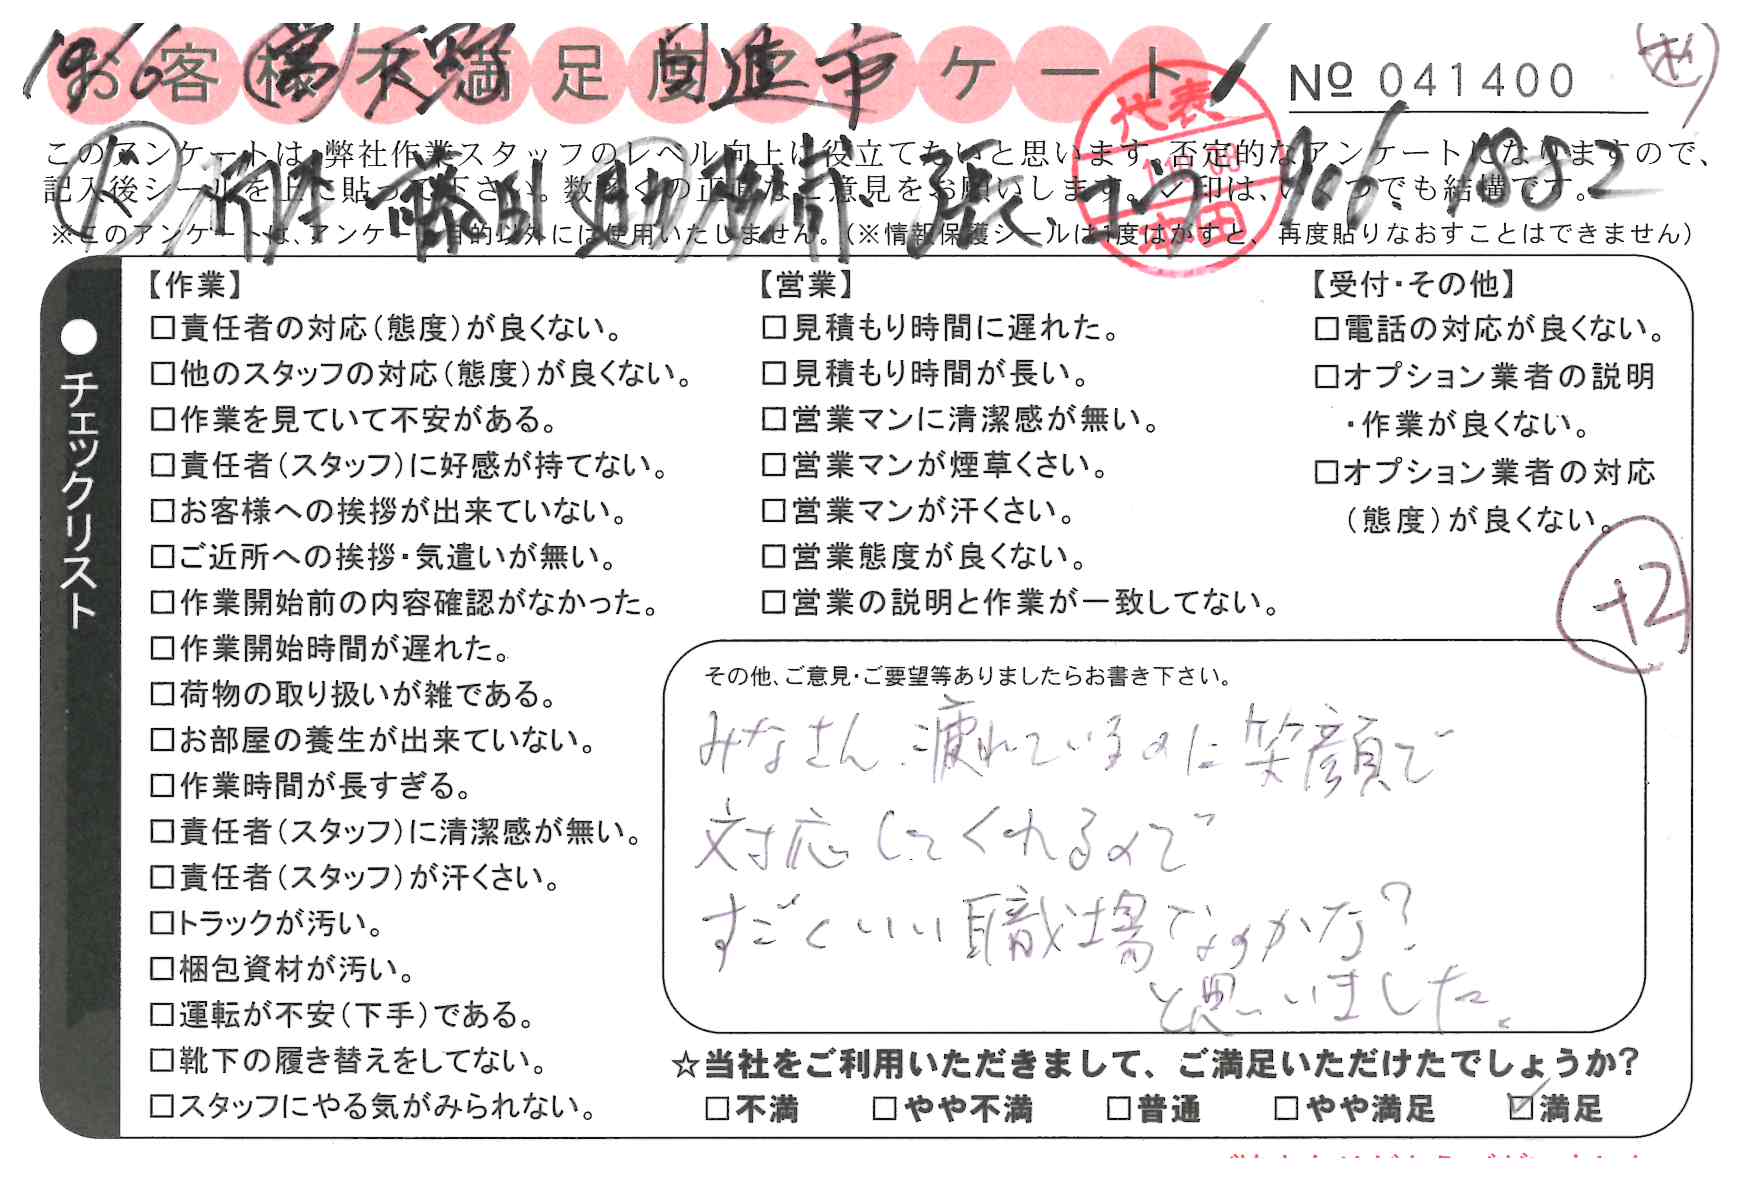 お客様不満足度アンケート
Nº 041400
このアンケートは、弊社作業スタッフのレベル向上に役立てたいと思います。否定的なアンケートになりますので、
記入後シールを上に貼って下さい。数多くの正直なご意見をお願いします。✓印は、いくつでも結構です。
※このアンケートは、アンケート目的以外には使用いたしません。(※情報保護シールは1度はがすと、再度貼りなおすことはできません)
代表
●チェックリスト
【作業】
□責任者の対応(態度)が良くない。
□他のスタッフの対応(態度)が良くない。
□作業を見ていて不安がある。
□責任者(スタッフ)に好感が持てない。
□お客様への挨拶が出来ていない。
□ご近所への挨拶・気遣いが無い。
□作業開始前の内容確認がなかった。
□作業開始時間が遅れた。
□荷物の取り扱いが雑である。
□お部屋の養生が出来ていない。
□作業時間が長すぎる。
□責任者(スタッフ)に清潔感が無い。
□責任者(スタッフ)が汗くさい。
□トラックが汚い。
□梱包資材が汚い。
□運転が不安(下手)である。
□靴下の履き替えをしてない。
□スタッフにやる気がみられない。
【営業】
□見積もり時間に遅れた。
□見積もり時間が長い。
□営業マンに清潔感が無い。
□営業マンが煙草くさい。
□営業マンが汗くさい。
□営業態度が良くない。
□営業の説明と作業が一致してない。
【受付・その他】
□電話の対応が良くない。
□オプション業者の説明
・作業が良くない。
□オプション業者の対応
(態度)が良くない。
+2
その他、ご意見・ご要望等ありましたらお書き下さい。
みなさん、疲れているのに笑顔で
対応してくれるので
すごくいい職場なのかな?
と思いました。
☆当社をご利用いただきまして、ご満足いただけたでしょうか?
□不満 □やや不満 □普通 □やや満足 ☑満足